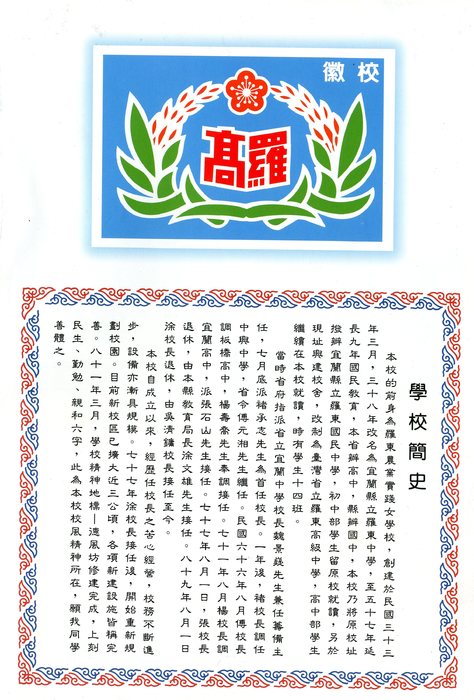 校徽
羅高
學校簡史
本校的前身為羅東農業實踐女學校，創建於民國三十三
年三月，三十八年改名為宜蘭縣立羅東中學，至五十七年延
長九年國民教育，本省辦高中，縣辦國中，本校乃將原校址
撥辦宜蘭縣立羅東國民中學，初中部學生留原校就讀，另於
現址興建校舍，改制為臺灣省立羅東高級中學，高中部學生
繼續在本校就讀，時有學生十四班。
當時省府指派省立宜蘭中學校長魏景嶷先生兼任籌備主
任，七月底派褚承志先生為首任校長。一年後，褚校長調任
中興中學，省令傅元湘先生繼任。民國六十六年八月傅校長
調板橋高中，楊壽喬先生奉調接任。七十一年八月楊校長調
宜蘭高中，派張石山先生接任。七十七年八月一日，張校長
退休，由本縣教育局長徐文雄先生接任。八十九年八月一日
涂校長退休，由吳清鏞校長接任至今。
本校自成立以來，經歷任校長之苦心經營，校務不斷進
步，設備亦漸具規模。七十七年涂校長接任後，開始重新規
劃校園。目前新校區已擴大近三公頃，各項新建設施皆稱完
善。八十一年三月，學校精神地標—德風坊修建完成，上刻
民主、勤勉、親和六字，此為本校校風精神所在，願我同學
善體之。